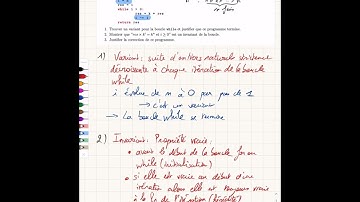 while i > 0
return res
1. Trouver un variant pour la boucle while et justifier que ce programme termine.
2. Montrer que est un invariant de la boucle.
3. Justifier la correction de ce programme.
1) Variant: suite d'entiers naturels
décroissante à chaque itération de la boucle
while
i évolue de n à 0 par pas de 1
→ c'est un variant
→ La boucle while se termine
2) Invariant: Propriété vraie:
• avant l'début de la boucle for ou
while (initialisation)
• si elle est vraie au début d'une
itération alors elle est toujours vraie
à la fin de l'itération